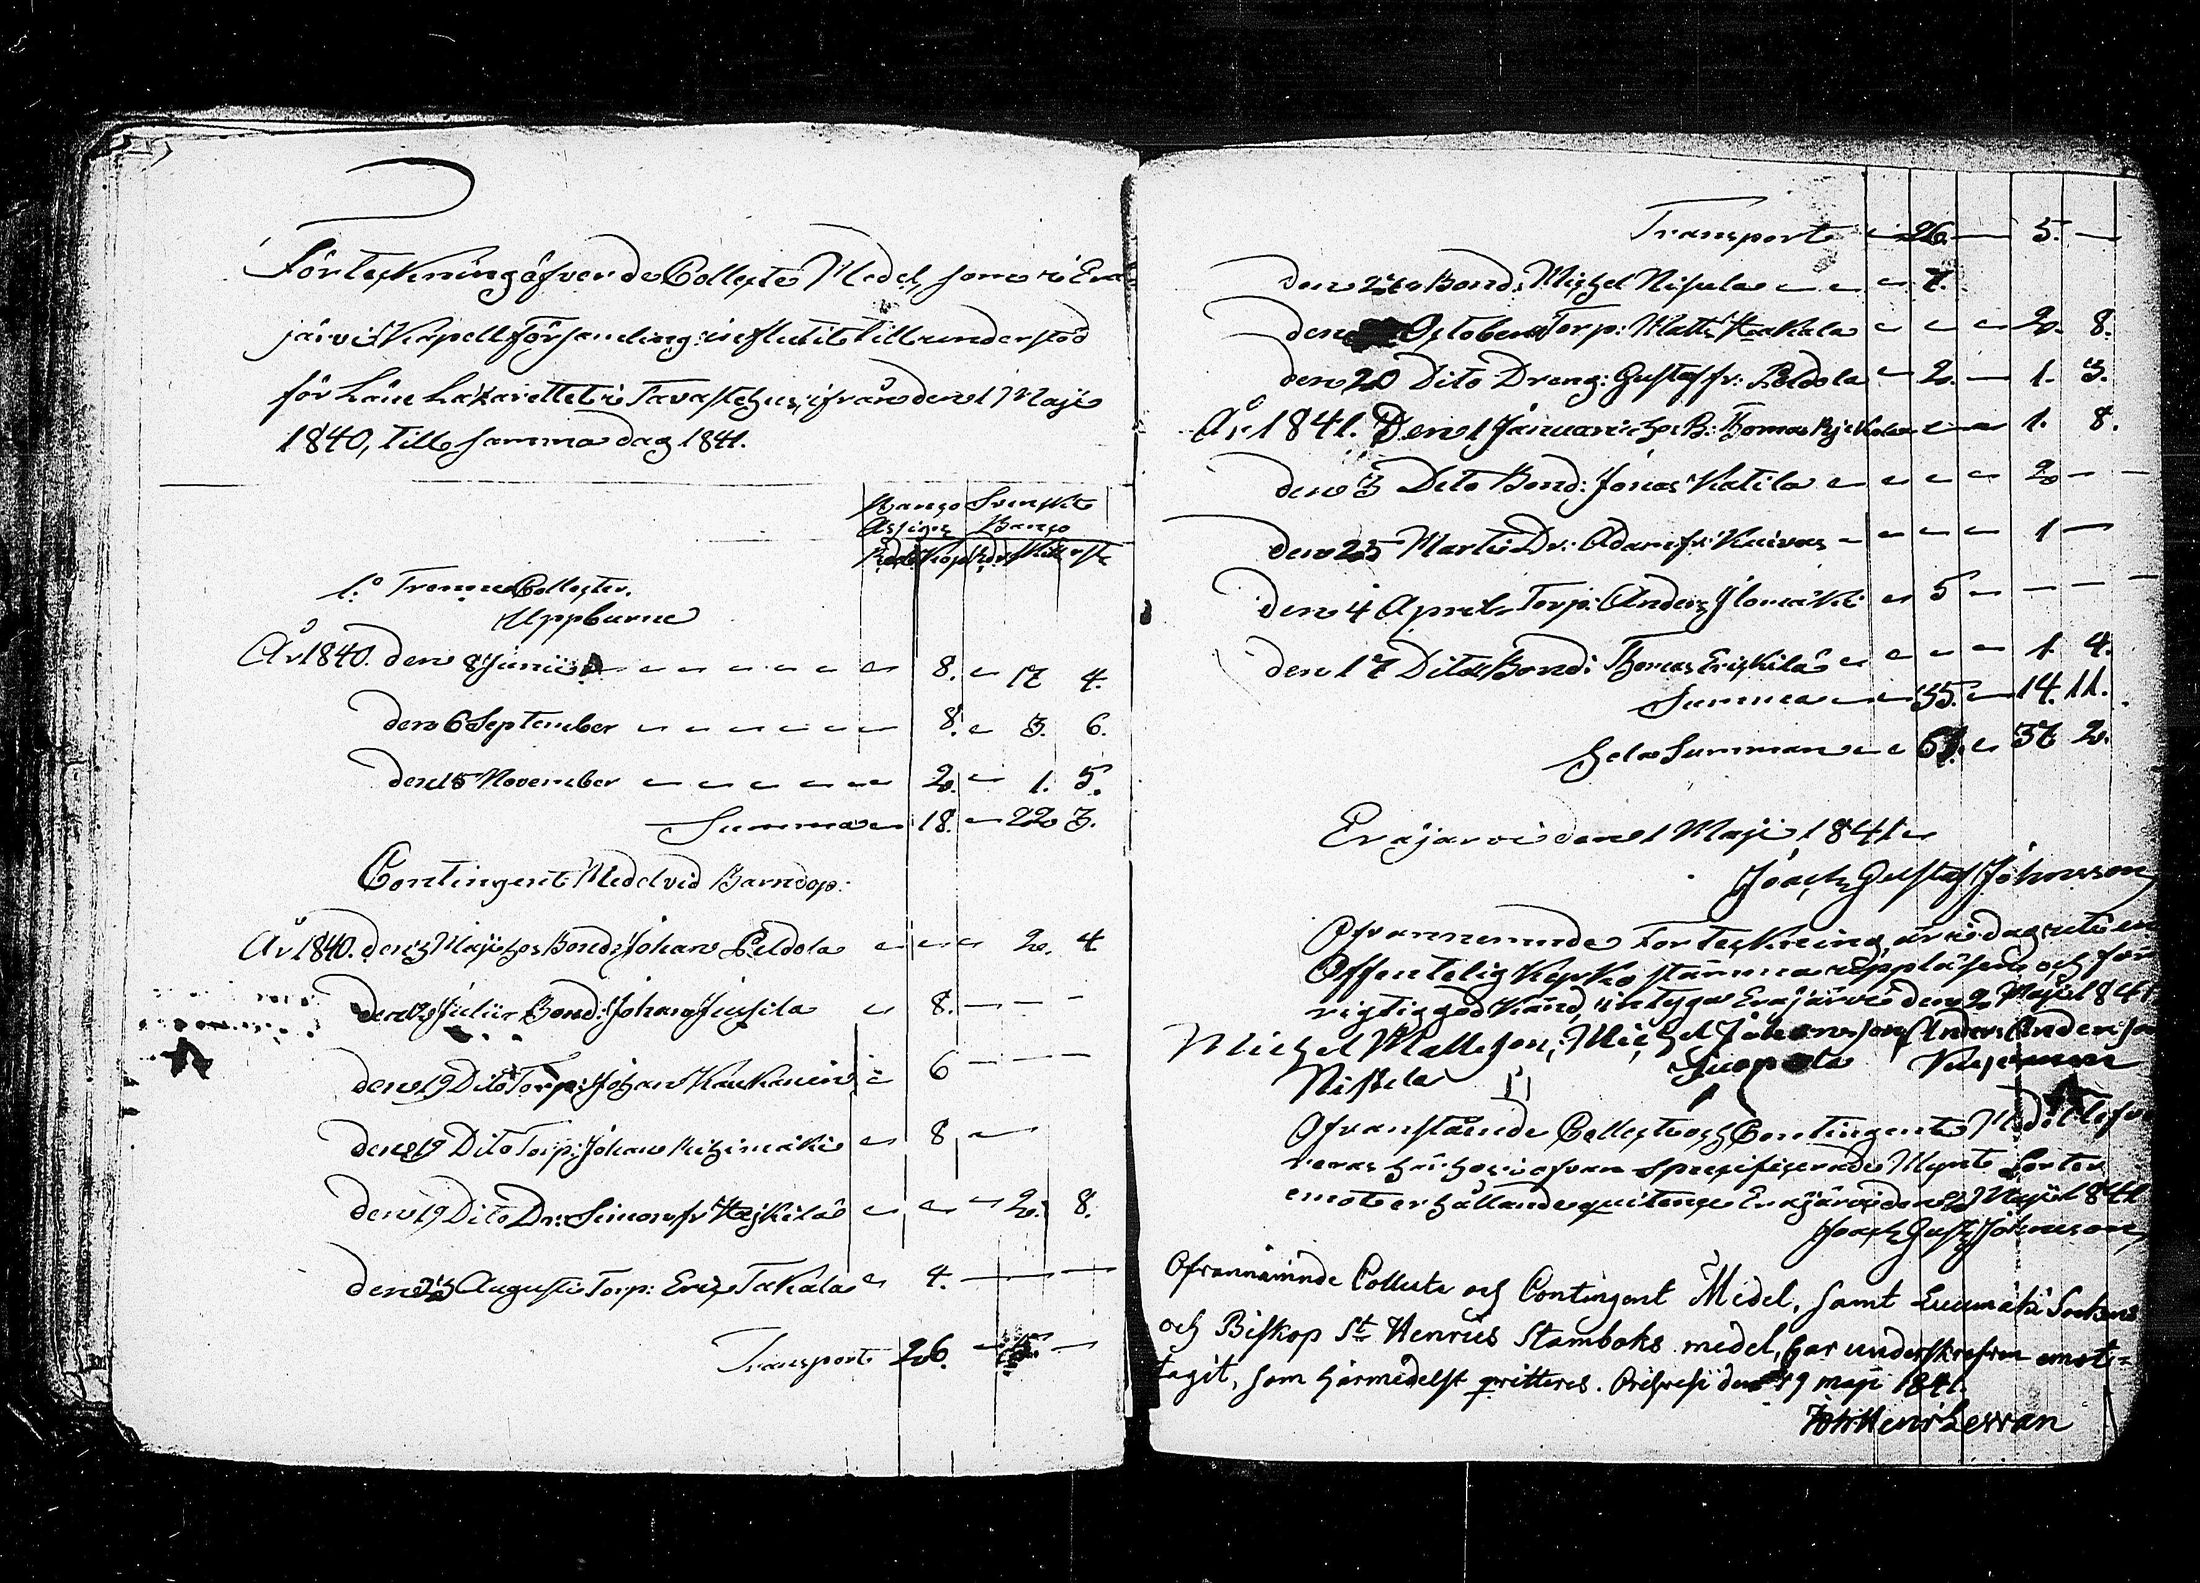 Förteckning öfver de Collecte Medel, som i Erä-
järvi Kapell församling influtit till understöd
för Läne Lazarettet i Tavastehus, ifrån den 1 Maji
1840, till samma dag 1841.
Banco Svenskt
Assign Banco
Rub Kop Rdr Skill rst
1:o Trenne Collecter.
Uppburne
År 1840. den 8 Junii 8. 17 4.
den 6 September 8. 3. 6.
den 15 November 2. 1. 5.
Summa 18. 22 3.
Contingent Medel vid Barndop:
År 1840. den Maji hos Bond: Johan Peldola 2. 4
den Julii Bond: Johan Jussila 8.
den 19 Dito Torp: Johan Kaukanein 6
den 19 Dito Torp: Johan 8
den 19 Dito Dr: Simon fr Hejkilä 2. 8.
den Augusti Torp: Eric Takala 4.
Transport 26. 5.
Transport 26. 5.
den Bond: Michel Nisula 7.
den October Torp: Matts 2. 8.
den 20 Dito Dreng: Gustaf fr: Peldola 2. 1. 3.
År 1841. Den 1 Januarii hos B: Thomas 1. 8.
den 3 Dito Bond: Jonas Katila 2
den 25 Martii Dr: Adam fr: Kuivas 1
den 4 April Torp: Anders Ilomäki 5
den 17 Dito Bond: Thomas Erickilä 1. 4.
Summa 35. 14. 11.
Hela Summan 37 2.
Eräjärvi den 1 Maji 1841
Joach Gustaf Johnsson
Ofvannemnde Förteckning, är i dag uti en
Offentelig Kyrko stämma uppläsen och för
rigtig god känd, intygar Eräjärvi den 2 Maji 1841
Michel Mattsson, Michel Johansson, Anders Anderson
Nisula Kuopela
Ofvanstående Collect och Contingent Medel lefve
reras här hos i ofvan specificerade Mynt Sorter
emot erhållande quitence Eräjärvi den Maji 1841
Joach Gust Johnsson
Ofvannämnde Collecte och Contingent Medel, samt Luumäki Sockens
och Biskop St Henrics Stamboks medel, har underskrefven emot-
tagit, som härmedelst qvitteres. Orihvesi den 19 maji 1841.
Joh Henr Lexran